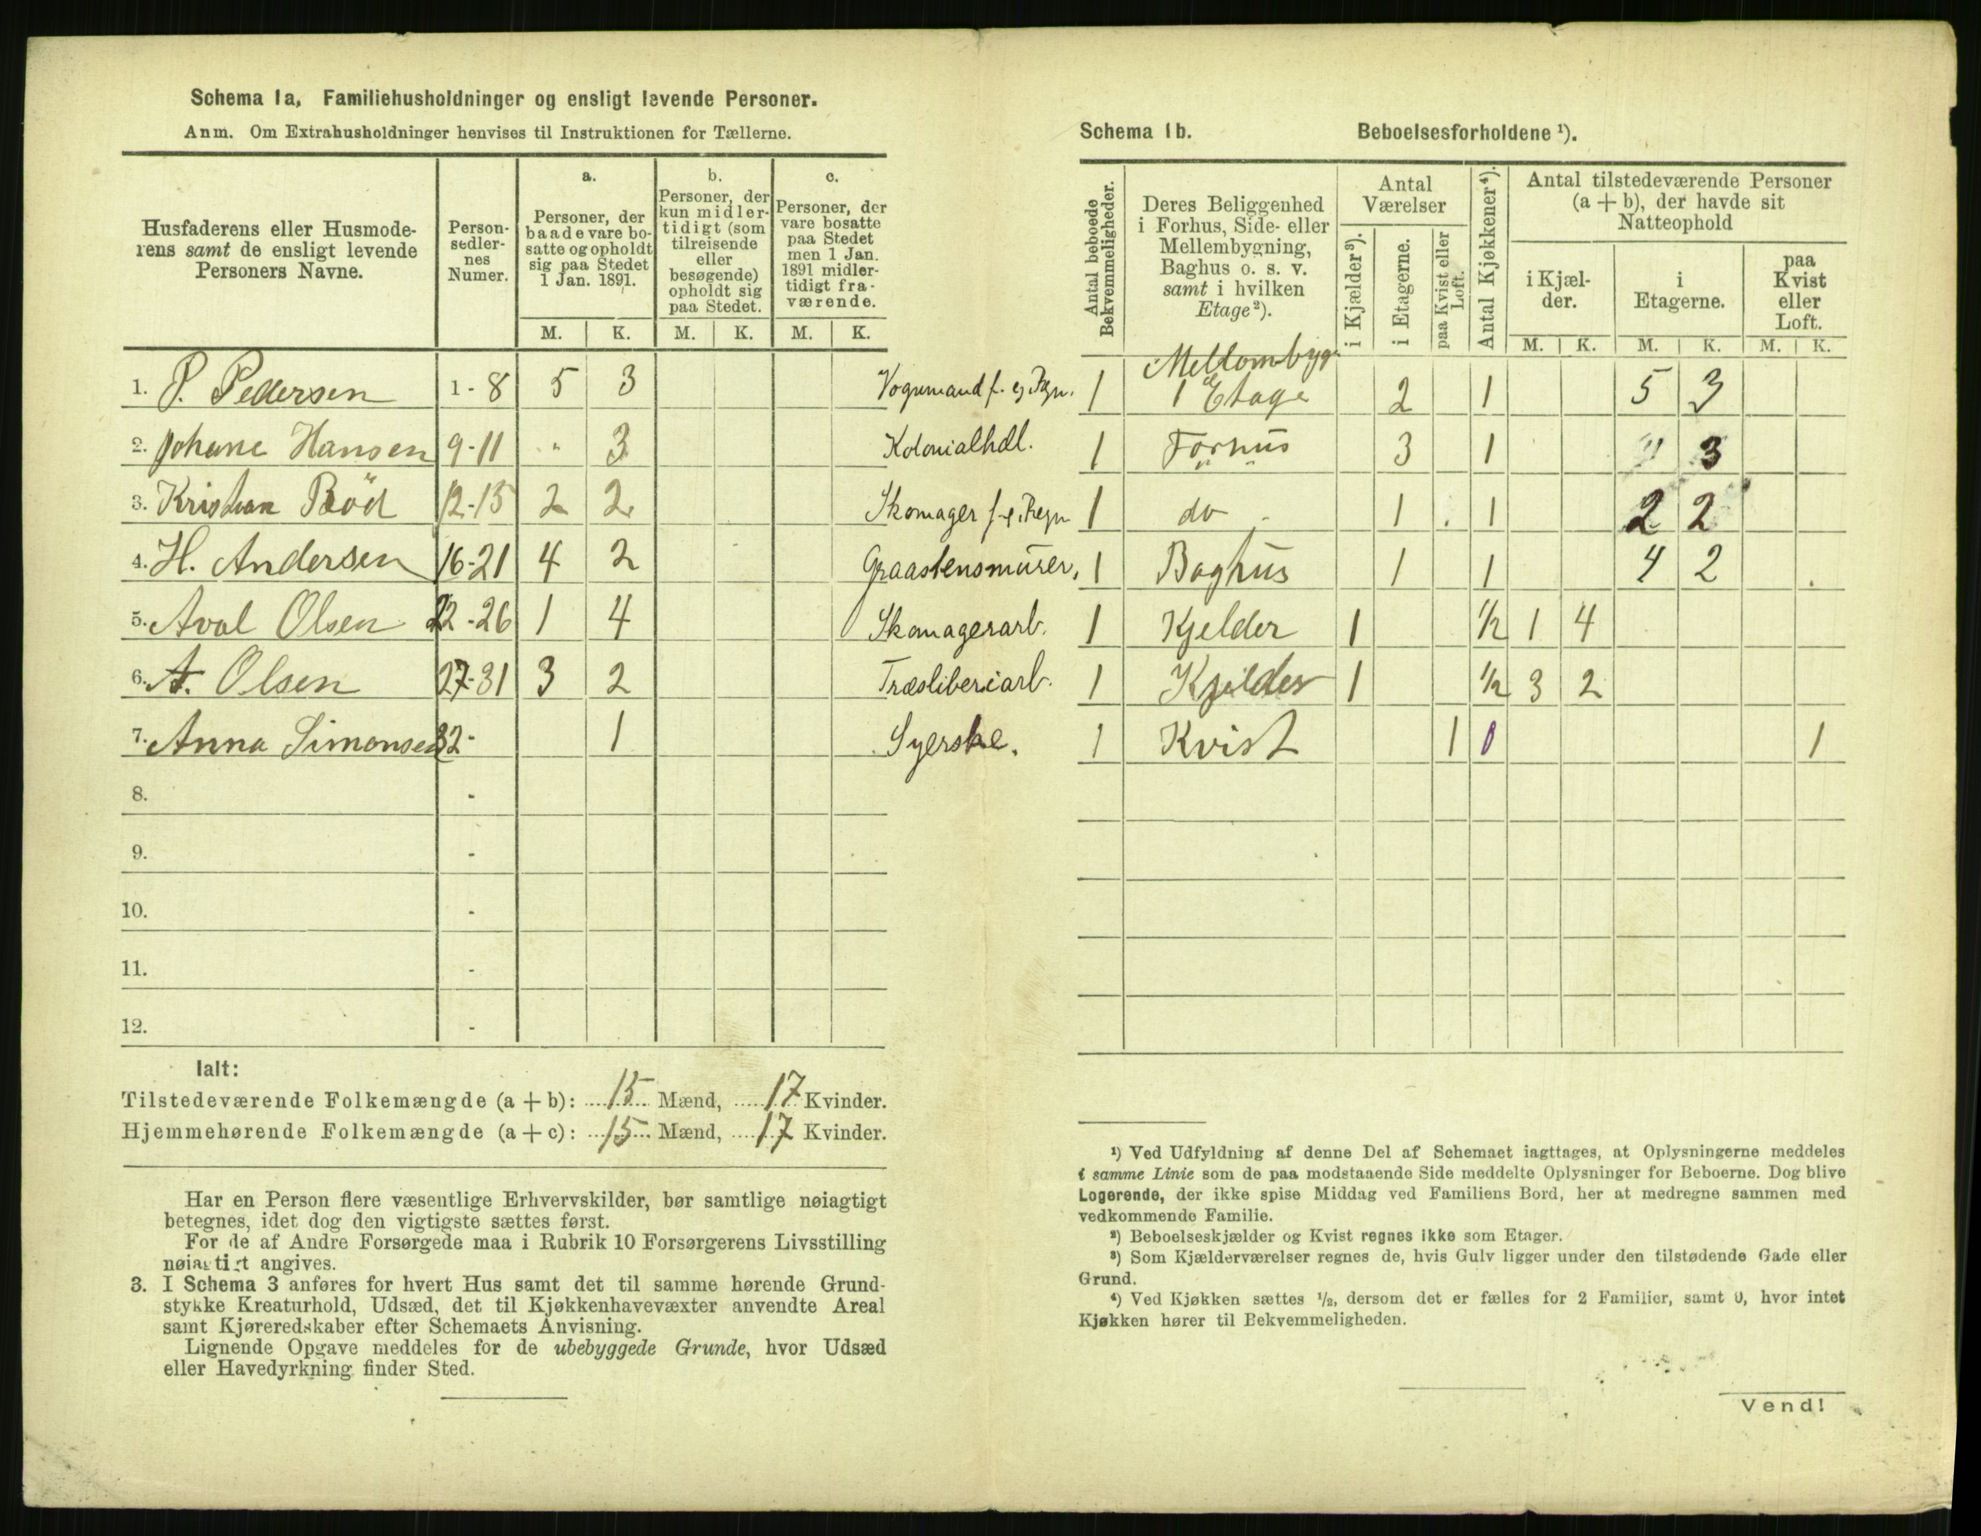 Schema 1a, Familiehusholdninger og ensligt levende Personer.
Anm. Om Extrahusholdninger henvises til Instruktionen for Tællerne.
Husfaderens eller Husmode-
rens samt de ensligt levende
Personers Navne.
Person-
sedler-
nes
Numer.
a.
Personer, der
baade vare bo-
satte og opholdt
sig paa Stedet
1 Jan. 1891.
b.
Personer, der
kun midler-
tidigt (som
tilreisende
eller
besøgende)
opholdt sig
paa Stedet.
c.
Personer, der
vare bosatte
paa Stedet
men 1 Jan.
1891 midler-
tidigt fra-
værende.
M. K. M. K. M. K.
1. P. Pedersen 1-8 5 3
2. Johane Hansen 9-11 " 3
3. Kristian Röd 12-15 2 2
4. H. Andersen 16-21 4 2
5. Aval Olsen 22-26 1 4
6. A. Olsen 27-31 3 2
7. Anna Simonsen 32- 1
8. -
9. -
10. -
11. -
12. -
Ialt:
Tilstedeværende Folkemængde (a + b): 15 Mænd, 17 Kvinder.
Hjemmehørende Folkemængde (a + c): 15 Mænd, 17 Kvinder.
Har en Person flere væsentlige Erhvervskilder, bør samtlige nøiagtigt
betegnes, idet dog den vigtigste sættes først.
For de af Andre Forsørgede maa i Rubrik 10 Forsørgerens Livsstilling
nøiagtigt angives.
3. I Schema 3 anføres for hvert Hus samt det til samme hørende Grund-
stykke Kreaturhold, Udsæd, det til Kjøkkenhavevæxter anvendte Areal
samt Kjøreredskaber efter Schemaets Anvisning.
Lignende Opgave meddeles for de ubebyggede Grunde, hvor Udsæd
eller Havedyrkning finder Sted.
Schema 1b. Beboelsesforholdene ¹).
Antal beboede
Bekvemmeligheder.
Deres Beliggenhed
i Forhus, Side- eller
Mellembygning,
Baghus o. s. v.
samt i hvilken
Etage²).
Antal
Værelser
i Kjælder³).
i Etagerne.
paa Kvist eller
Loft.
Antal Kjøkkener⁴).
Antal tilstedeværende Personer
(a + b), der havde sit
Natteophold
i Kjæl-
der.
i
Etagerne.
paa
Kvist
eller
Loft.
M. K. M. K. M. K.
Vognmand f. eg. Regn. 1 Mellombyg. 1 Etage 2 1 5 3
Kolonialhdl. 1 Forhus 3 1 " 3
Skomager f. e. Regn 1 do 1 1 2 2
Graastensmurer, 1 Baghus 1 1 4 2
Skomagerarb. 1 Kjelder 1 1/2 1 4
Træsliberiarb. 1 Kjelder 1 1/2 3 2
Syerske. 1 Kvist 1 0 1
¹) Ved Udfyldning af denne Del af Schemaet iagttages, at Oplysningerne meddeles
i samme Linie som de paa modstaaende Side meddelte Oplysninger for Beboerne. Dog blive
Logerende, der ikke spise Middag ved Familiens Bord, her at medregne sammen med
vedkommende Familie.
²) Beboelseskjælder og Kvist regnes ikke som Etager.
³) Som Kjælderværelser regnes de, hvis Gulv ligger under den tilstødende Gade eller
Grund.
⁴) Ved Kjøkken sættes ½, dersom det er fælles for 2 Familier, samt 0, hvor intet
Kjøkken hører til Bekvemmeligheden.
Vend!